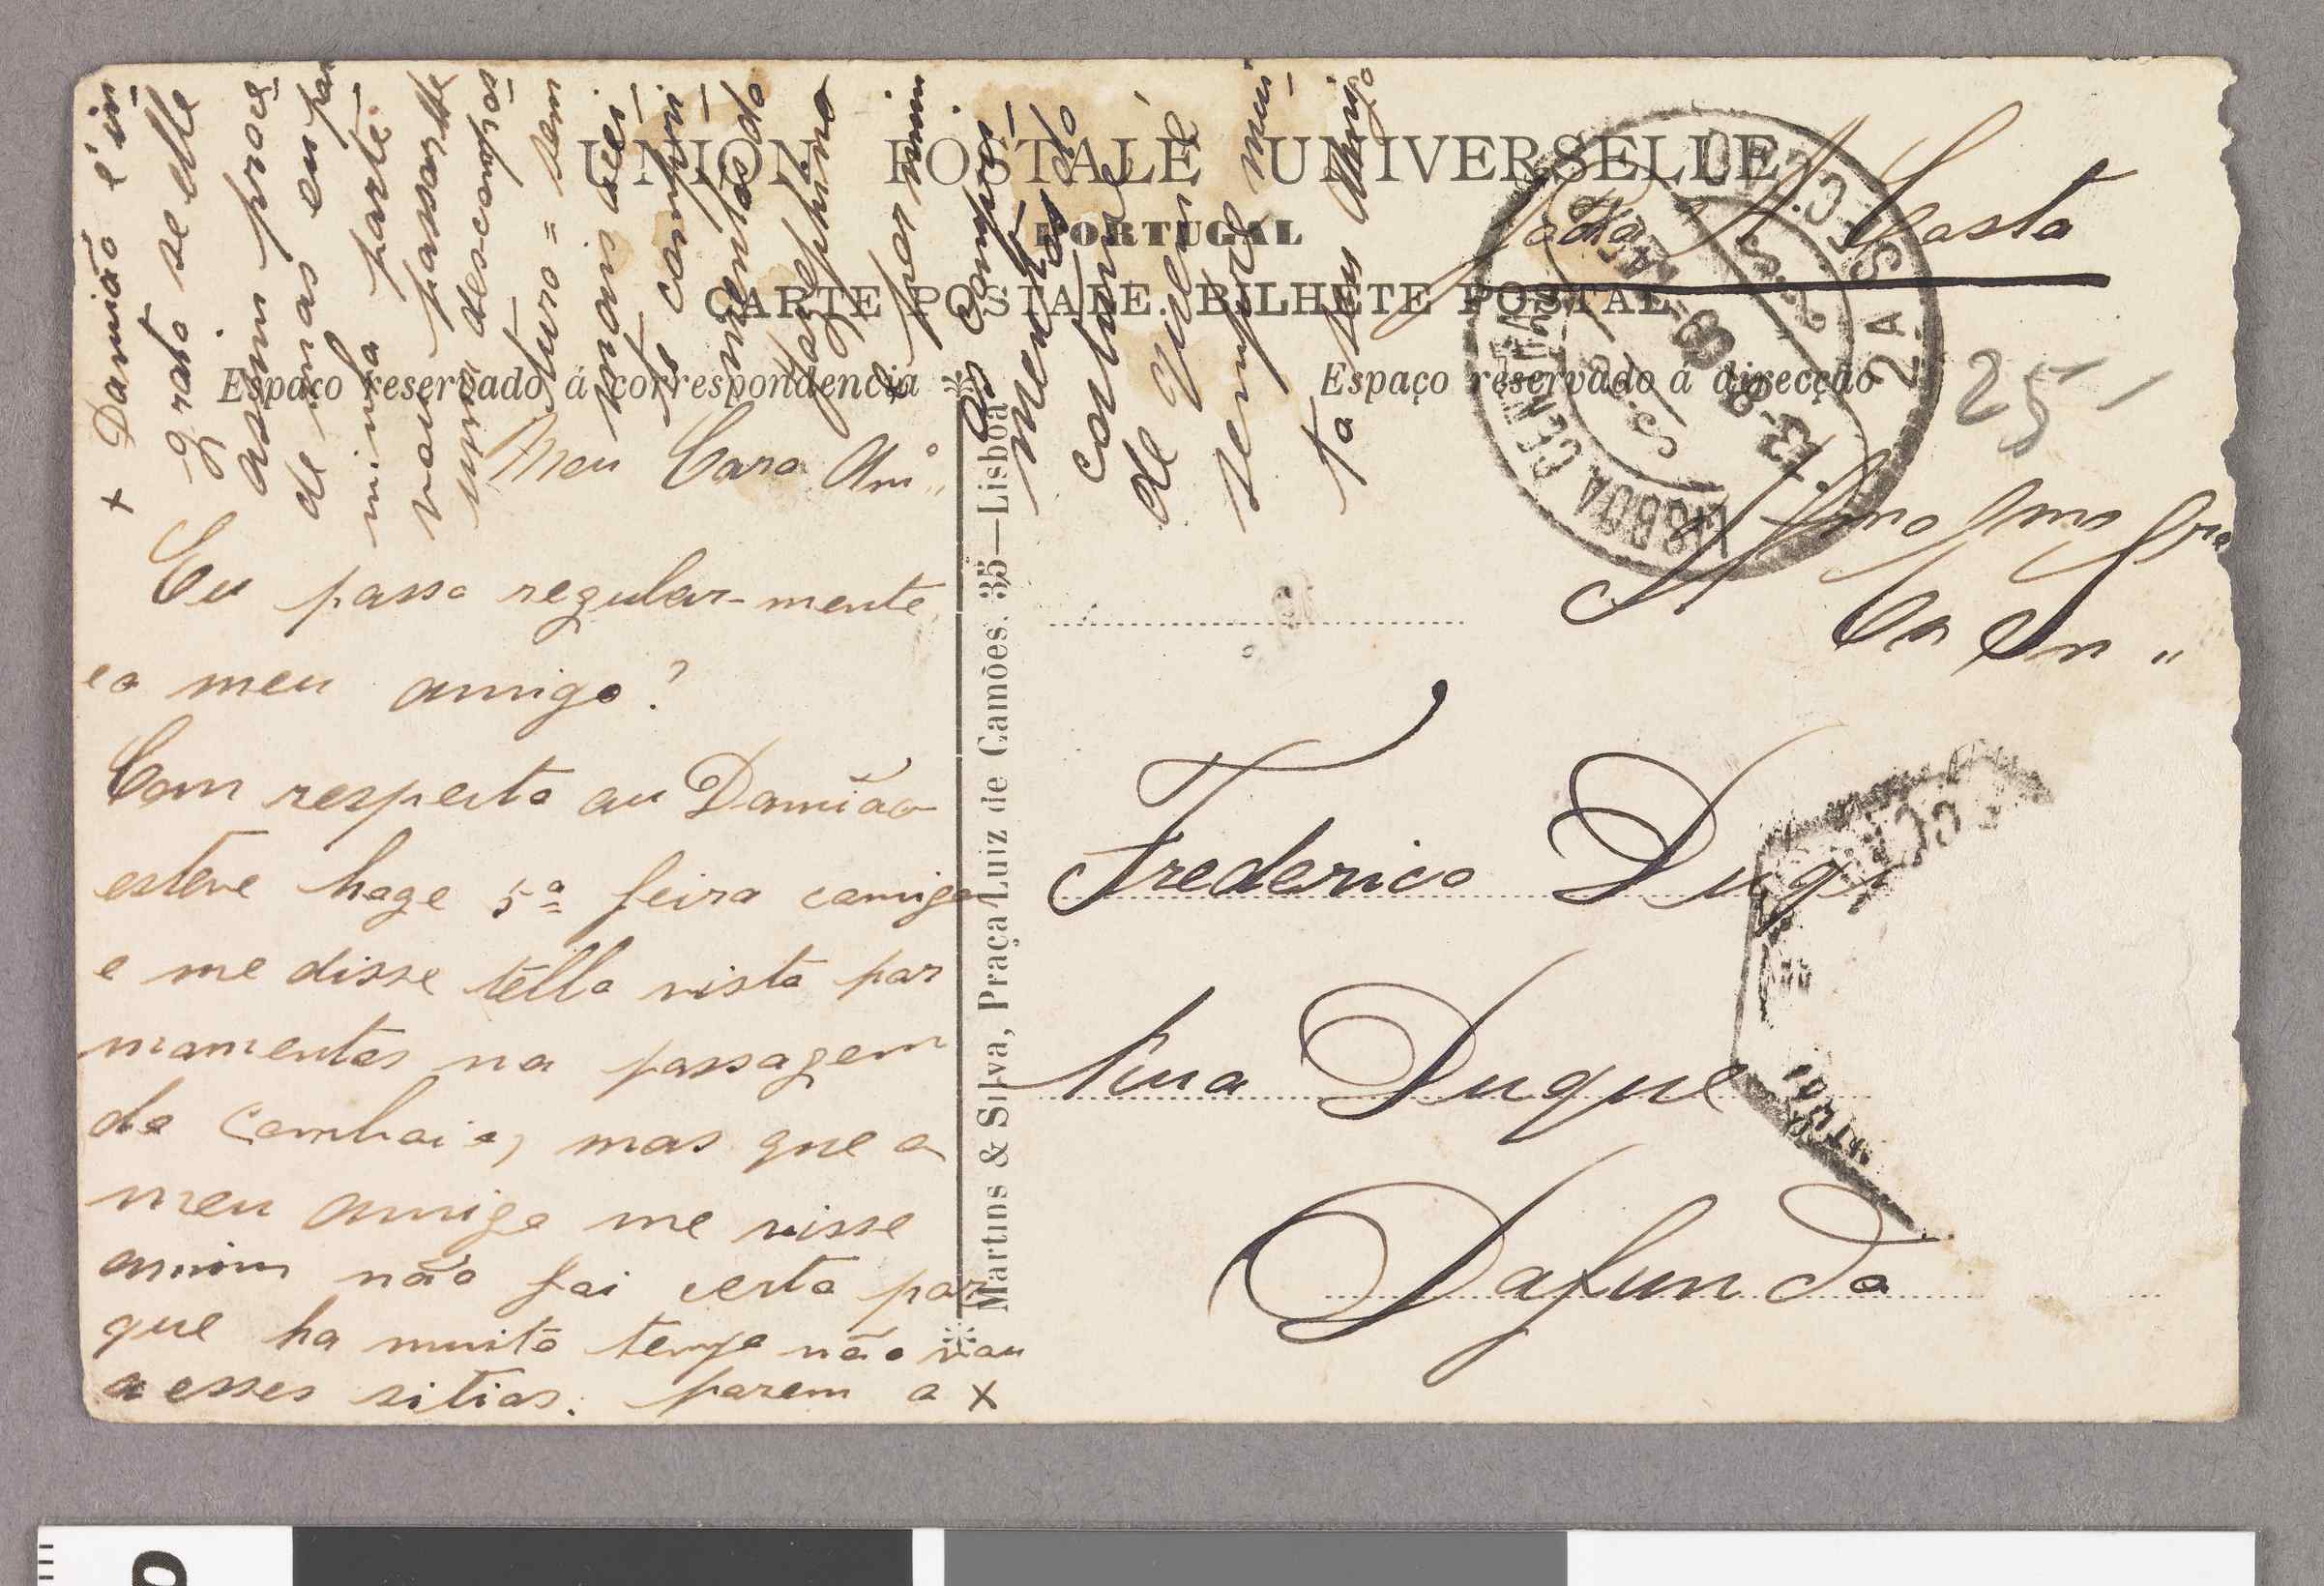 UNION POSTALE UNIVERSELLE
PORTUGAL
CARTE POSTALE. BILHETE POSTAL
Espaço reservado á correspondencia
Espaço reservado á direcção
Martins & Silva, Praça Luiz de Camões. 35—Lisboa
Meu Caro Am.º
Eu passo regular-mente
e o meu amigo?
Com respeito au Damião
esteve hoge 5ª feira comigo
e me disse tello visto por
momentos na passagem
do comboio, mas que o
meu amigo me visse
amim não foi certo por
que ha muito tempo não vou
a esses sitios. porem o x
x Damião é in
grato se elle
assim proce
de mas eu par
minha parte
vou passar-lhe
uma descompos
tura = sem
mais acei
te compri
mentos do
Jazephino
e por mim
os compri
mentos do
costume
de quem é
sempre mui
to seu Amigo
João A Costa
LISBOA CENTRAL
2A SECÇÃO
25-
Ao Ilmo Exmo Snr
Frederico Dug
Rua Duque
Dafundo